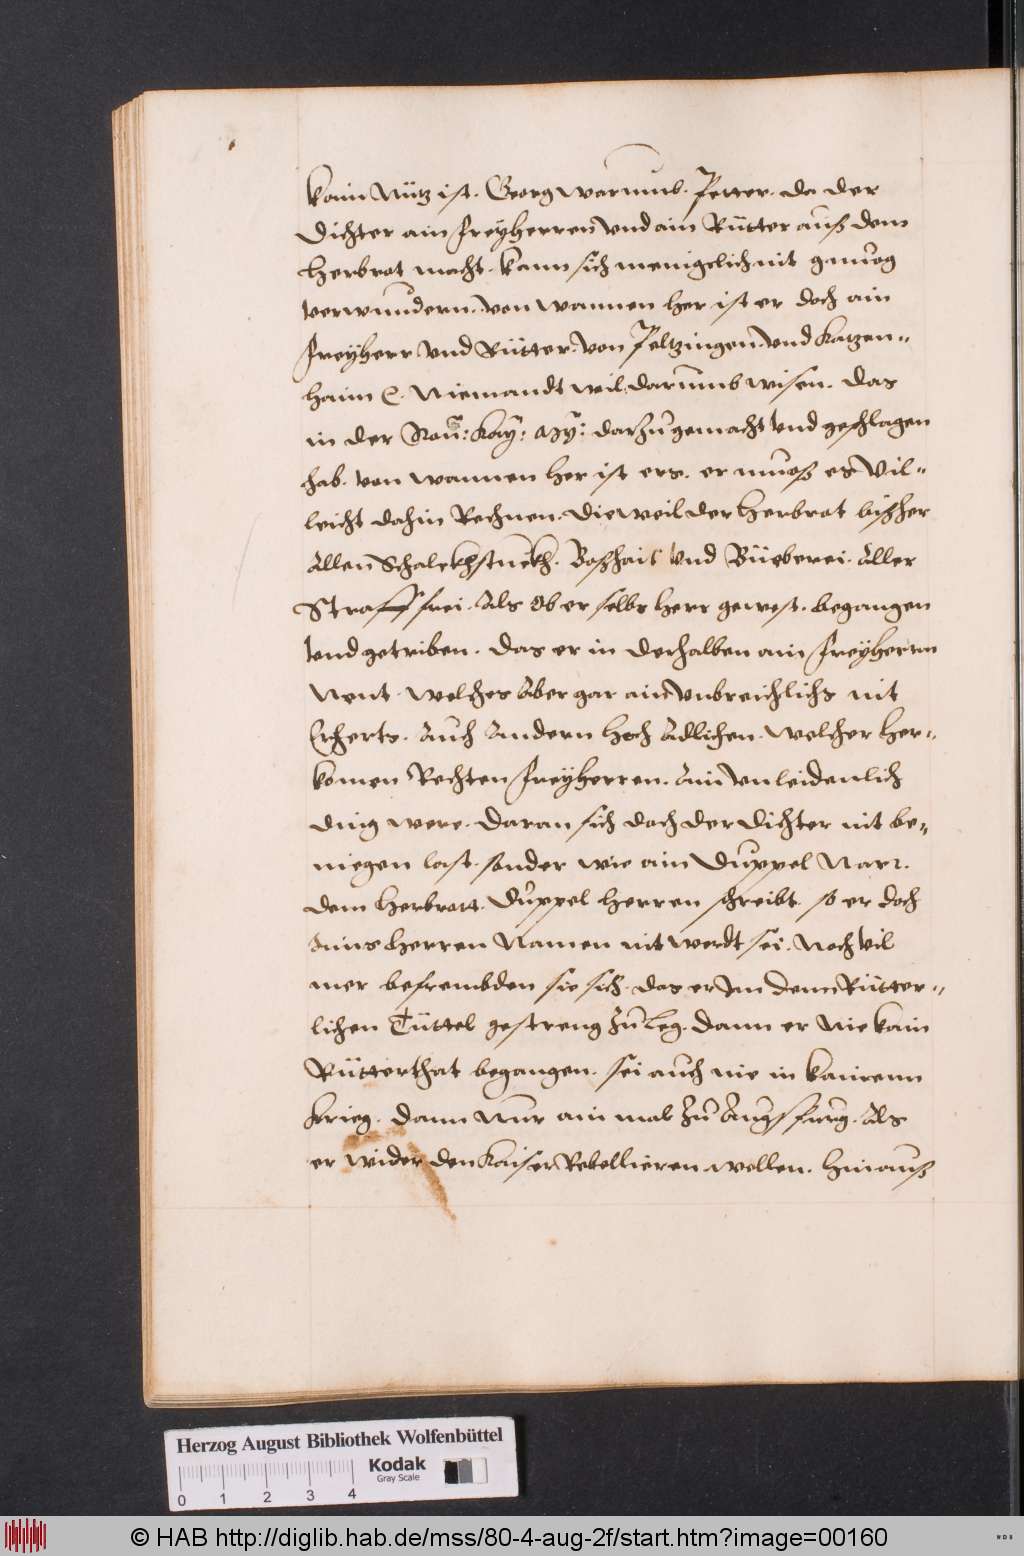 kain Nütz ist. Georg warumb. Petter. da der
dichter ain Freyherren vnd ain Rütter auß dem
Herbrot macht. kann sich menigelich nit genuog
verwundern. von wannen her ist er doch ain
Freyherr vnd Rütter. von Peltzingen. vnd Katzen-
haim &. Niemandt wil darumb wisen. das
in der Rön: Kay: My: darzu gemacht vnd geschlagen
hab. von wannen her ist ers. er muoß es vil-
leicht dahin Rechnen. dieweil der Herbrot bißher
Allen Schalckhstuckh. Boßhait vnd Büeberei. Aller
Straff frei. Als ob er selbs herr gewest. begangen
vnd getriben. das er in derhalben ain Freyherrn
Nent. welches Aber gar ain vnbreichlichs nit
Erherts. Auch Andern Hoch Adlichen. welcher her-
komen Rechten Freyherren. Ain vnleidenlich
ding were. daran sich doch der dichter nit be-
niegen last. sonder wie ain duppel Narr.
dem Herbrott. duppel herren schreibt. so er doch
Ains herren Namen nit werdt sei. Noch vil
mer befrembden sie sich. das er Im denn Rütter-
lichen Tüttel gestreng zu leg. dann er Nie kain
Rütterthat begangen. sei auch nie in kainenn
krieg. dann Nur ain mal zu Augspurg. Als
er wider den Kaiser Rebellieren wellen. hinauß
Herzog August Bibliothek Wolfenbüttel
Kodak
Gray Scale
0 1 2 3 4
© HAB http://diglib.hab.de/mss/80-4-aug-2f/start.htm?image=00160